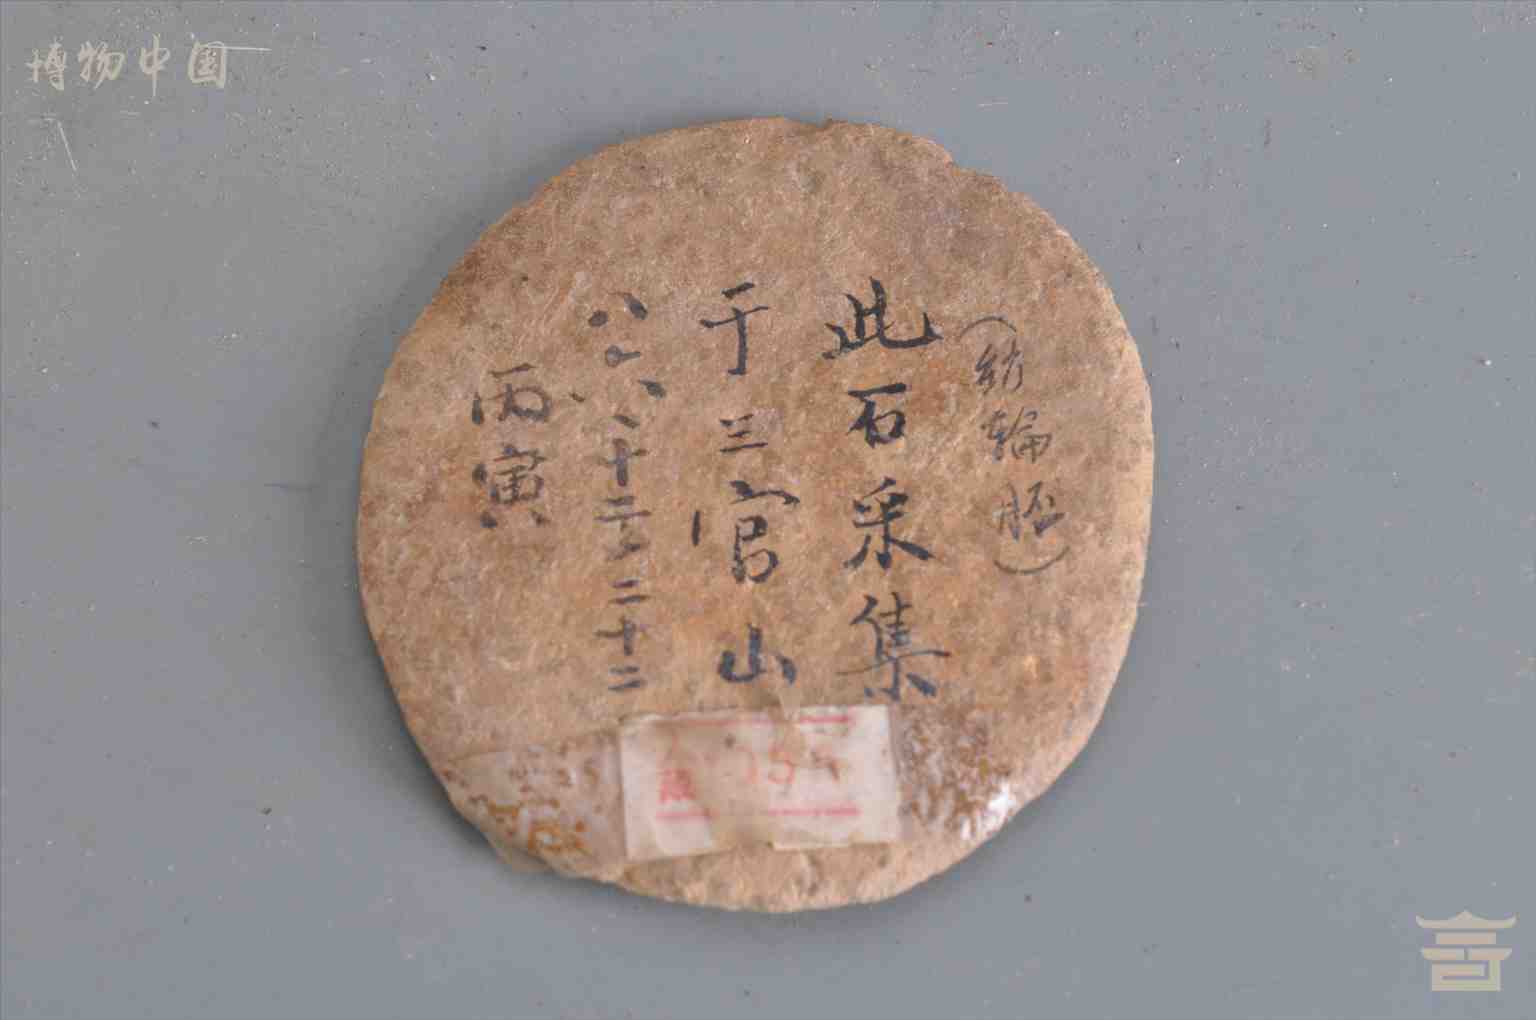 博物中国
(纺轮胚)
此石采集
于三官山
八六、十二、二十二
丙寅
藏